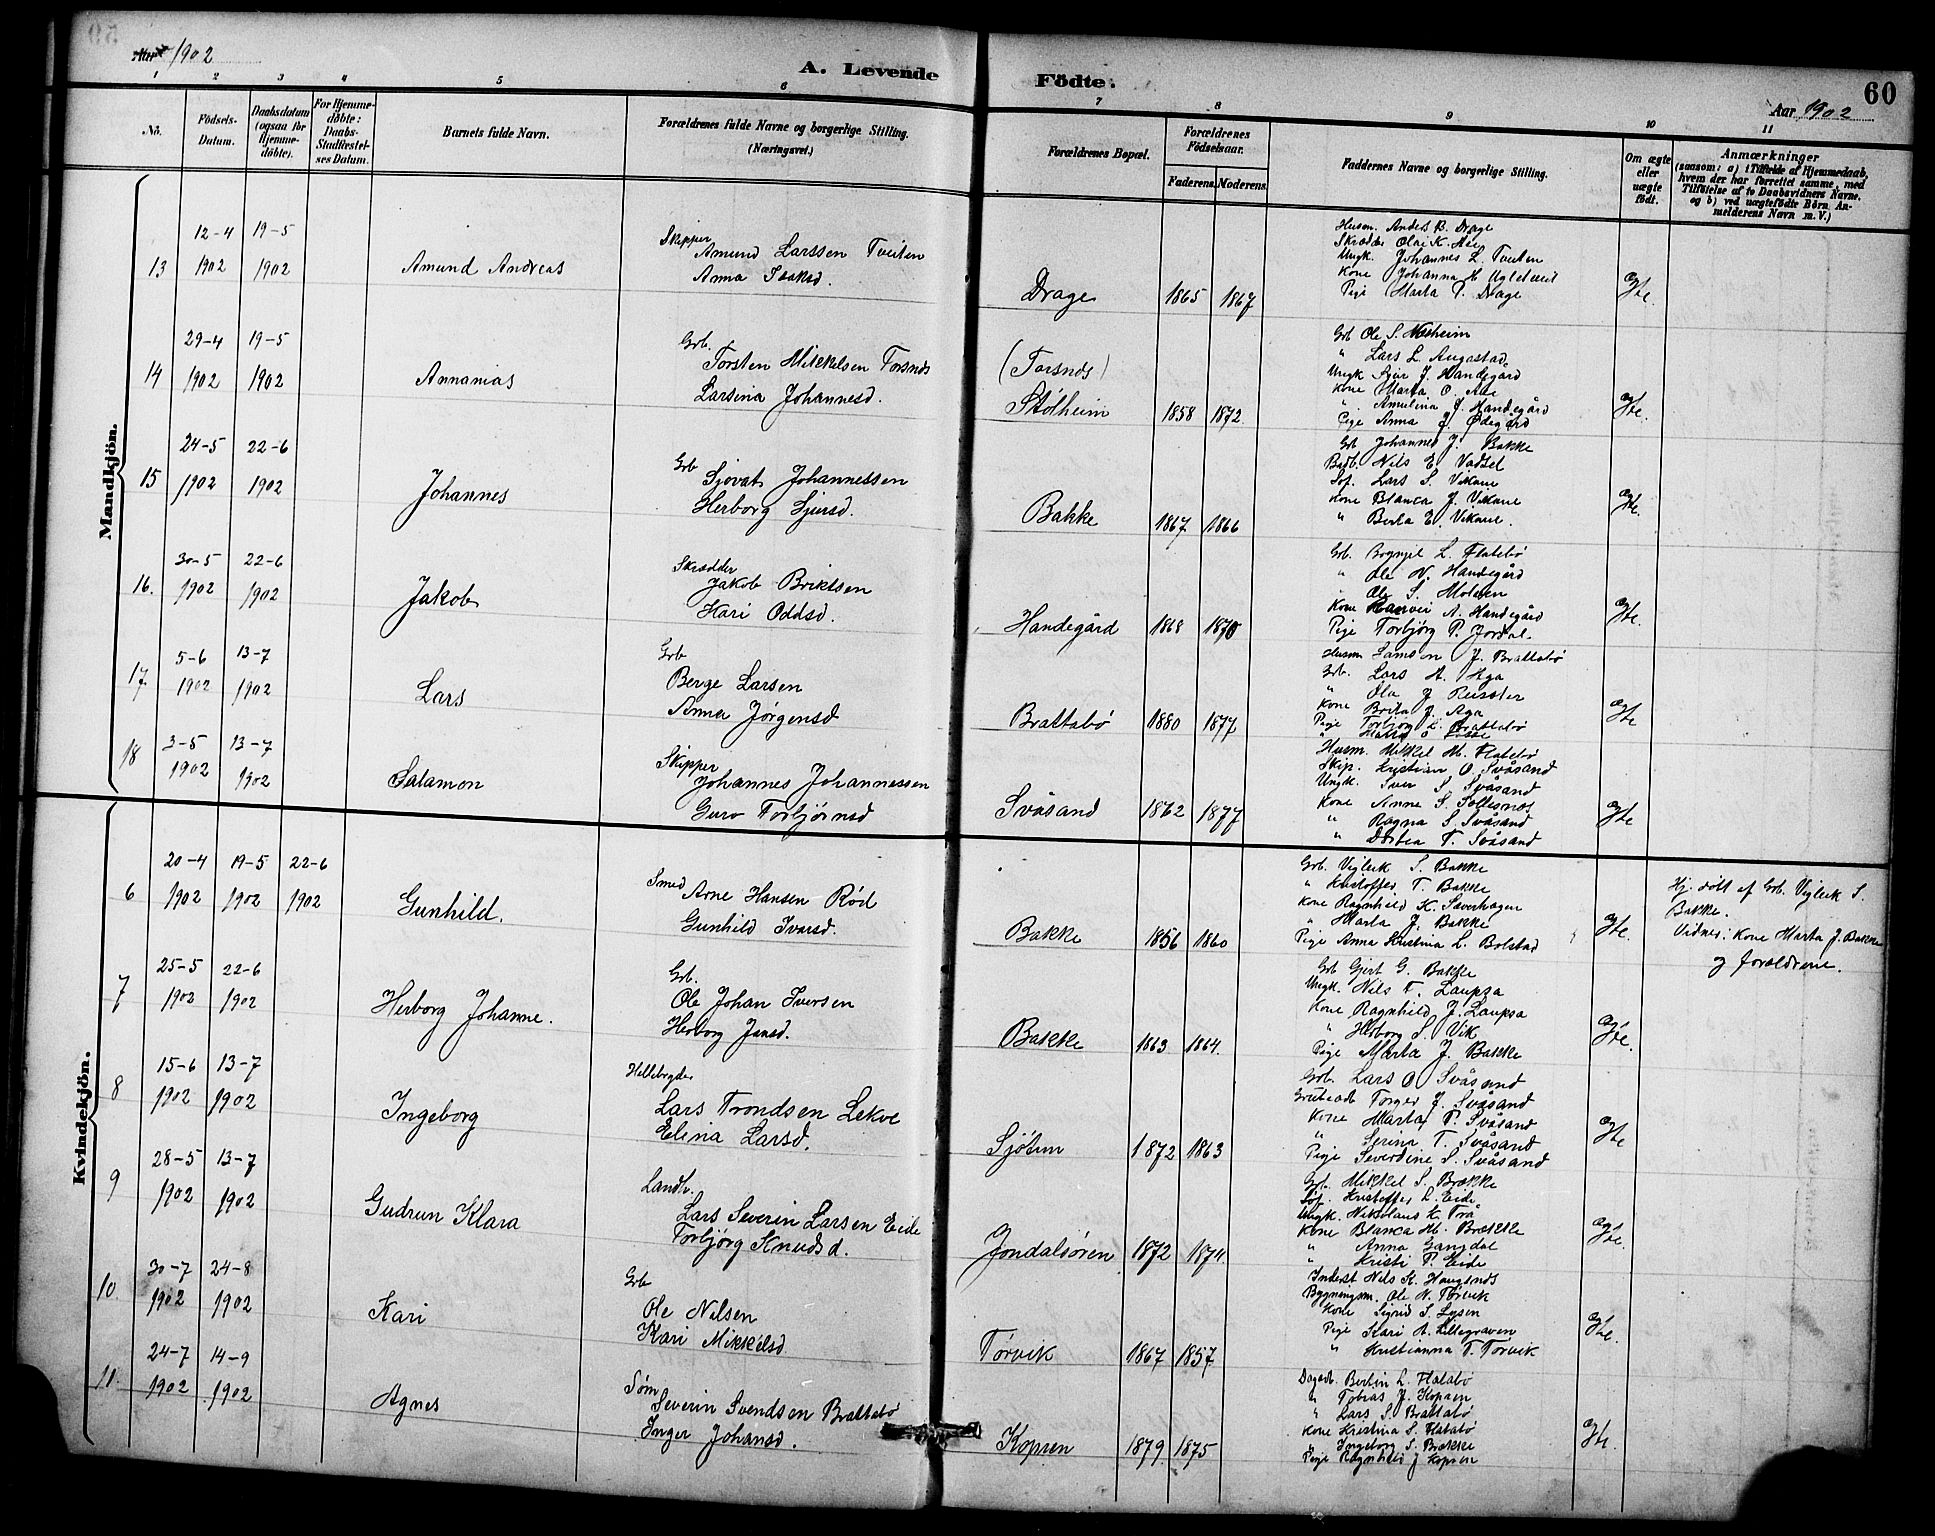 Aar 1902
A. Levende Födte.
60
Aar 1902
1 2 3 4 5 6 7 8 9 10 11
No.
Födsels-Datum.
Daabsdatum (ogsaa for Hjemme-döbte).
For Hjemme-döbte: Daabs-Stadfæstel-ses Datum.
Barnets fulde Navn.
Forældrenes fulde Navne og borgerlige Stilling. (Næringsvei.)
Forældrenes Bopæl.
Forældrenes Födselsaar.
Faderens. Moderens.
Faddernes Navne og borgerlige Stilling.
Om ægte eller uægte födt.
Anmærkninger
(saasom: a) i Tilfælde af Hjemmedaab, hvem der har forrettet samme, med Tilföielse af to Daabsvidners Navne, og b) ved uægtefödte Börn, An-melderens Navn m. V.)
Mandkjön.
13
12-4 1902
19-5 1902
Amund Andreas
Skipper
Amund Larssen Tveiten
Anna Isaksd.
Drage
1865 1867
Husm. Anders B. Drage
Skrædder Olai K. Aae
Ungk. Johannes L. Tveiten
Kone Johanna H. Ugletveit
Pige Marta T. Drage
Ægte.
14
29-4 1902
19-5 1902
Annanias
Grb.
Torsten Mikkelsen Torsnes
Larsina Johannesd.
(Torsnes)
Stølheim
1858 1872.
Grb Ole S. Næsheim
" Lars L. Augastad
Ungk Sjur J. Handegård
Kone Marta O. Aae
" Amulina J. Handegård
Pige Anna J. Ødegård
Ægte.
15
24-5 1902
22-6 1902
Johannes
Grb
Sjovat Johannessen
Herborg Sjursd.
Bakke
1867 1866
Grb Johannes J. Bakke
Nils E. Vadsel
Lars S. Vikane
Kone Blanca J. Vikane
" Berta E. Vikane.
Ægte.
16.
30-5 1902
22-6 1902
Jakob
Skrædder
Jakob Briktsen
Kari Oddsd.
Handegård
1868 1870
Grb. L. Flatebø
" Ole N. Handegård
" Ole S. Molven
Kone A. Handegård
Pige Torbjørg P. Jordal.
Ægte.
17
5-6 1902
13-7 1902
Lars
Grb
Berge Larsen
Anna Jørgensd
Brattabø
1880 1877
Husm Samson J. Brattabø
Grb. Lars H. Aga
" Ola J Reisæter
Kone Brita J. Aga
Pige Torbjørg L. Brattabø
Ægte
18
3-5 1902
13-7 1902
Salamon
Skipper
Johannes Johannessen
Guro Torbjørnsd
Svåsand
1862 1877
Husm. Mikkel M. Flatebø
Skip. Kristian O. Svåsand
Ungk. Iver S. Svåsand
Kone Anne S. Sollesnes
" Ragna S. Svåsand
" Dortea T. Svåsand
Ægte
Kvindekjön.
6
20-4 1902
19-5 1902
22-6 1902
Gunhild.
Smed
Arne Hansen Rød
Gunhild Ivarsd.
Bakke
1856 1860
Grb. Vigleik S. Bakke
" Kristoffer T. Bakke
Kone Ragnhild K. Sæverhagen
" Marta J. Bakke
Pige Anna Kristina L. Bolstad
Ægte.
Hj. døbt af Grb. Vigleik S. Bakke.
Vidner: Kone Marta J. Bakke
og forældrene.
7
25-5 1902
22-6 1902
Herborg Johanne.
Grb.
Ole Johan Iversen
Herborg Jensd.
Bakke
1863 1864.
Grb Gjert G. Bakke
Ungk. Nils T. Laupsa
Kone Ragnhild J. Laupsa
" Herborg S. Vik
Pige Marta J. Bakke
Ægte.
8
15-6 1902
13-7 1902
Ingeborg
Hellebryder
Lars Trondsen Lekve
Elina Larsd.
Sjøtun
1872 1863
Grb. Lars O Svåsand
Torger J. Svåsand
Kone Marta T. Svåsand
" Serina T. Svåsand
Pige Severdine S. Svåsand
Ægte
9
28-5 1902
13-7 1902
Gudrun Klara
Landh.
Lars Severin Larsen Eide
Torbjørg Knudsd.
Jondalsøren
1872 1874.
Grb. Mikkel S. Brekke
Kristoffer L. Eide
Ungk. Nikolaus K. Trå
Kone Blanca M. Brekke
" Anna Gangdal
" Kristi P. Eide
Ægte.
10
30-7 1902
24-8 1902
Kari
Grb
Ole Nilsen
Kari Mikkelsd.
Tørvik
1867 1857.
Inderst Nils K. Haugsnes
Bygningsm. Ole N. Tørvik
Kone Sigrid S. Lysen
Pige Kari A. Lillegraven
" Kristianna T. Tørvik
Ægte.
11.
24-7 1902
14-9 1902
Agnes
Søm.
Severin Svendsen Brattabø
Inger Johansd.
Kopren
1879. 1875
Dagarb. Bertin L. Flatabø
" Tobias J. Kopren
" Lars S. Brattabø
Kone Kristina S. Flatabø
" Ingeborg S. Brekke
Pige Ragnhild J Kopren
Ægte.